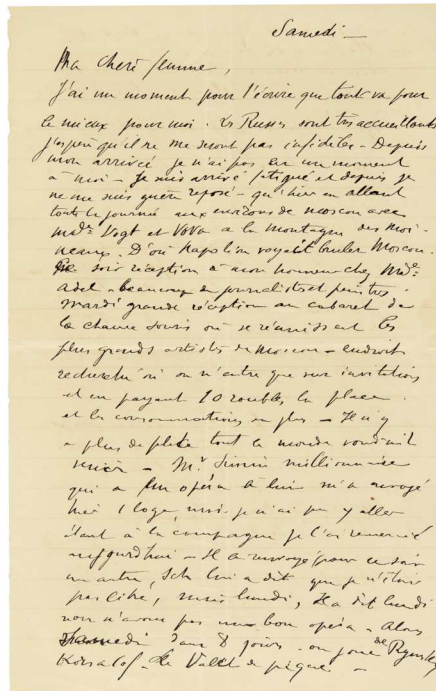 Samedi —
Ma chère Jeanne,
J'ai un moment pour t'écrire que tout va pour
le mieux pour moi. Les Russes sont très accueillants
j'espère qu'ils ne me seront pas infidèles — Depuis
mon arrivée je n'ai pas eu un moment
à moi — Je suis arrivé fatigué et depuis je
ne me suis guère reposé — qu'hier en allant
toute la journée aux environs de moscou avec
Md. Vogt et Vova a la montagne des moi-
neaux. D'où Napoléon voyait bruler Moscou.
Ce soir réception a mon honneur chez Md.
Adel — beaucoup de journalistes et peintres.
Mardi grande réception au cabaret de
la chauve souris où se réunissent les
plus grands artistes de Moscou — endroit
recherché où on n'entre que sur invitations
et en payant 10 roubles la place.
et les consommations en plus — Il n'y
a plus de place tout le monde voudrait
venir — Mr. millionnaire
qui a un opéra à lui m'a envoyé
hier 1 loge, mais je n'ai pu y aller
étant à la campagne je l'ai remercié
aujourd'hui — Il a envoyé pour ce soir
un autre, lui a dit que je n'étais
pas libre, mais lundi, Il a dit lundi
nous n'avons pas un bon opéra — Alors
Samedi dans 8 jours — on joue de Rymsky
Korsakof — Le Valet de pique —